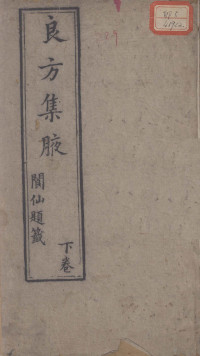 良方集腋
閬仙題籤
下卷